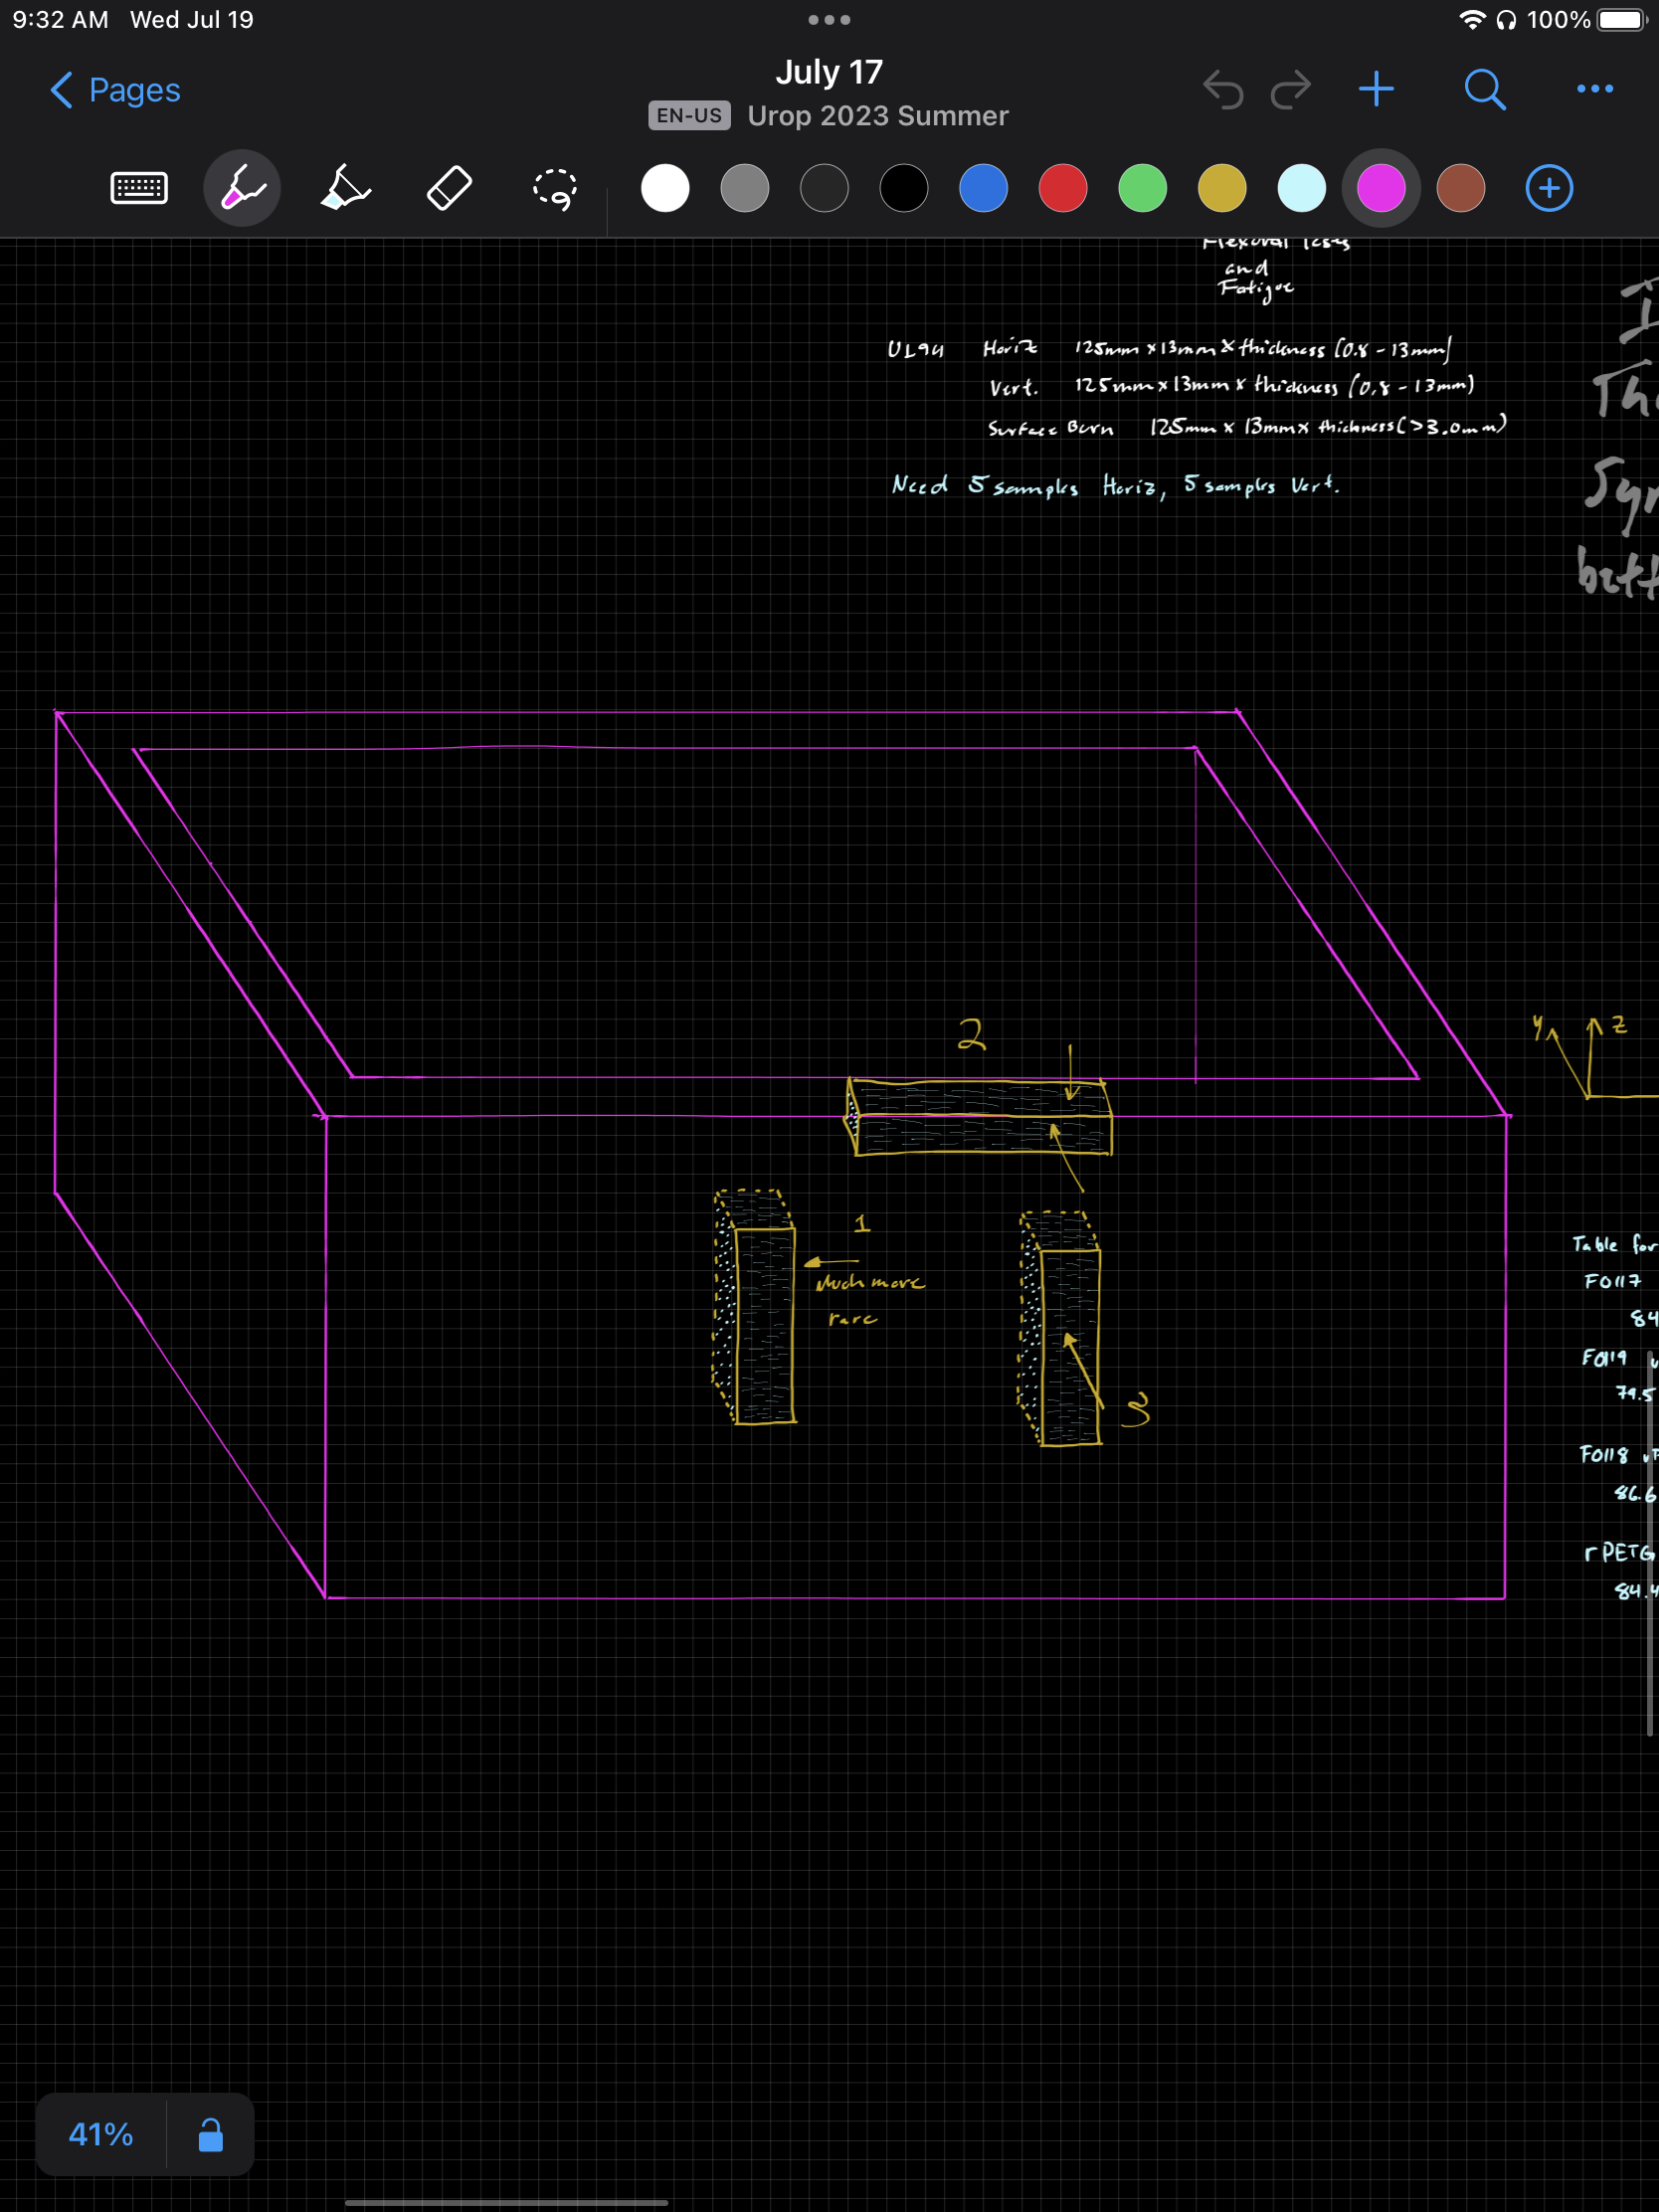 9:32 AM Wed Jul 19
100%
Pages
July 17
EN-US Urop 2023 Summer
and
Fatigue
UL94 Horiz 125mm x 13mm x thickness (0.8 - 13mm)
Vert. 125mm x 13mm x thickness (0.8 - 13mm)
Surface Burn 125mm x 13mm x thickness (>3.0mm)
Need 5 samples Horiz, 5 samples Vert.
2
y z
1
Much more
rare
3
Table for
F0117
84
F0119
79.5
F0118
86.6
rPETG
84.4
41%